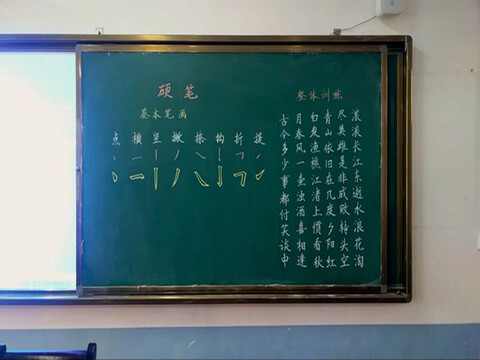 硬笔
基本笔画
点 横 竖 撇 捺 钩 折 提
整体训练
滚滚长江东逝水浪花淘
尽英雄是非成败转头空
青山依旧在几度夕阳红
白发渔樵江渚上惯看秋
月春风一壶浊酒喜相逢
古今多少事都付笑谈中